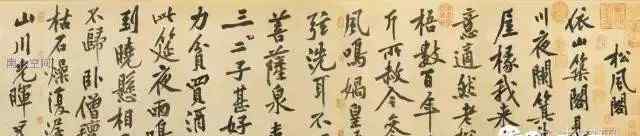 松風閣
依山築閣見
川夜闌箕
屋椽我来
意適然老松
梧數百年
斤所赦今参
風鳴媧皇
弦洗耳不
菩薩泉
三二子甚好
力貧買酒
此筵夜雨鳴
到曉懸相
不歸卧僧氊
枯石燥潺湲
山川光暉